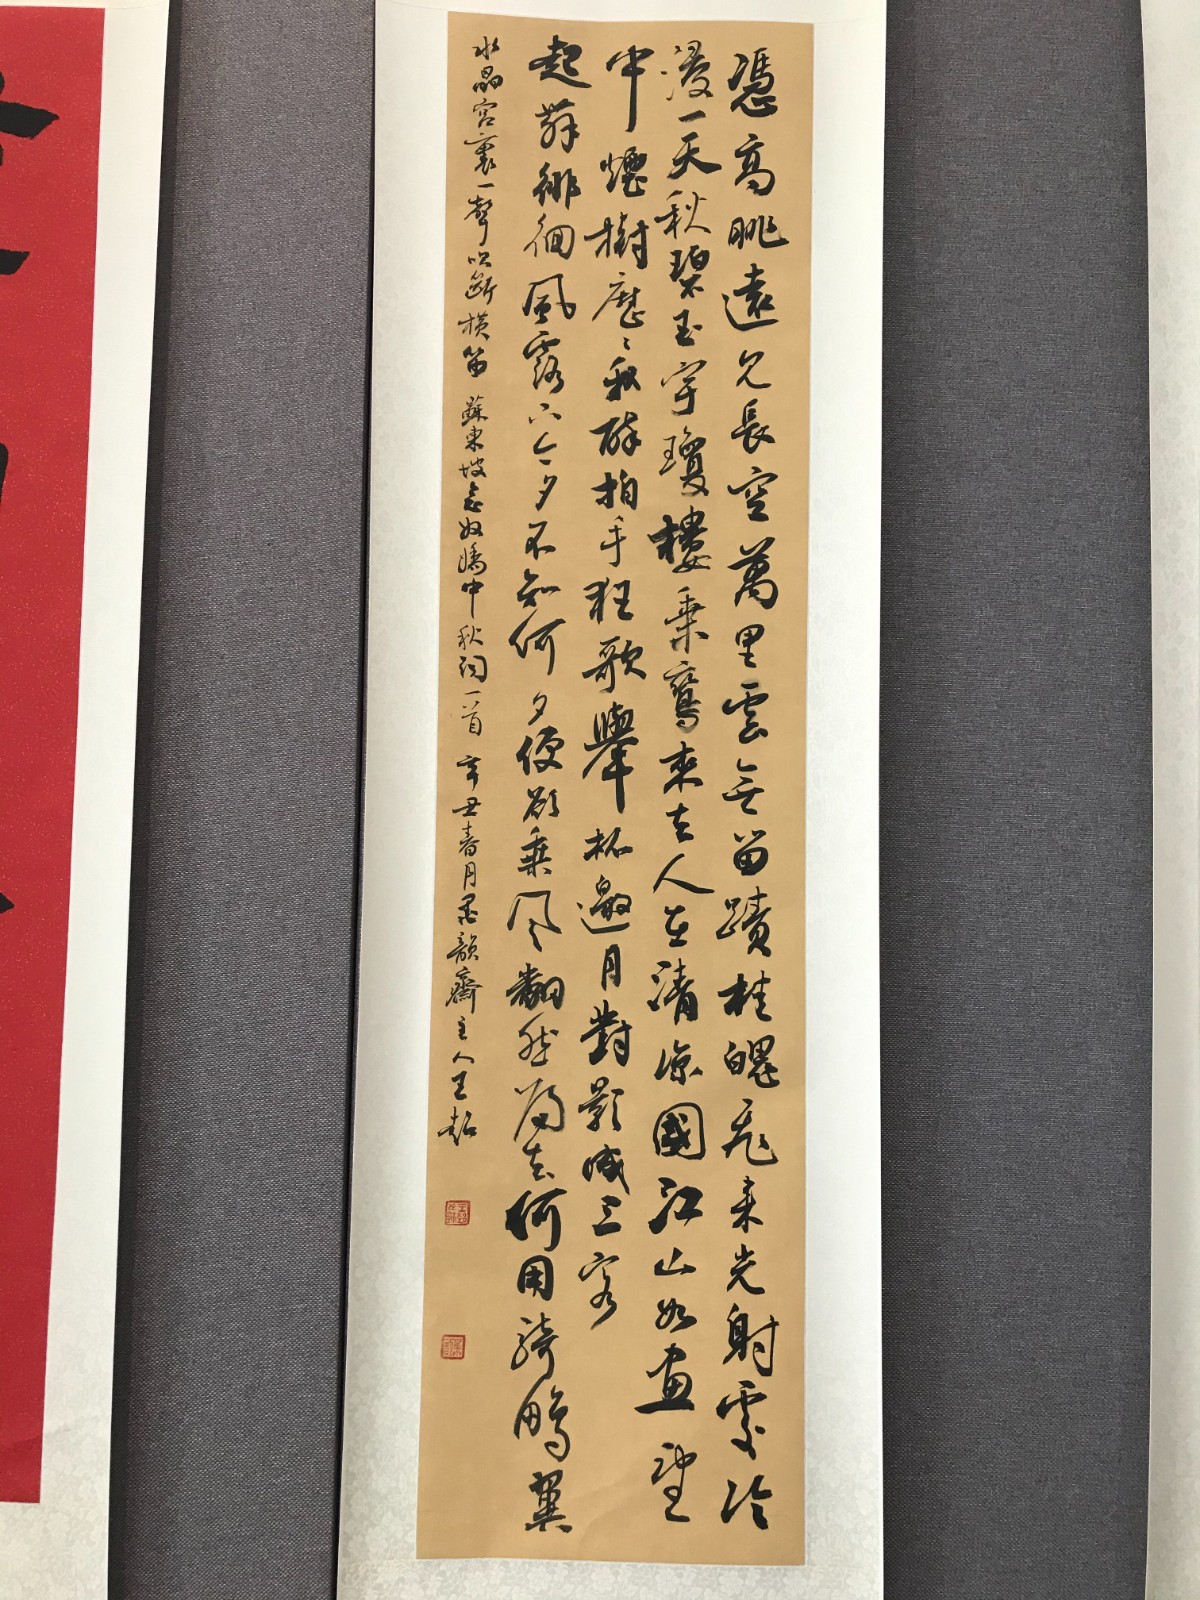 憑高眺遠見長空萬里雲無留蹟桂魄飛來光射處冷
浸一天秋碧玉宇瓊樓乘鸞來去人在清涼國江山如畫望
中煙樹歷〻我醉拍手狂歌舉杯邀月對影成三客
起舞徘徊風露下今夕不知何夕便欲乘風翻然歸去何用騎鵬翼
水晶宮裏一聲吹斷橫笛 蘇東坡念奴嬌中秋詞一首 辛丑春月墨韻齋主人王超